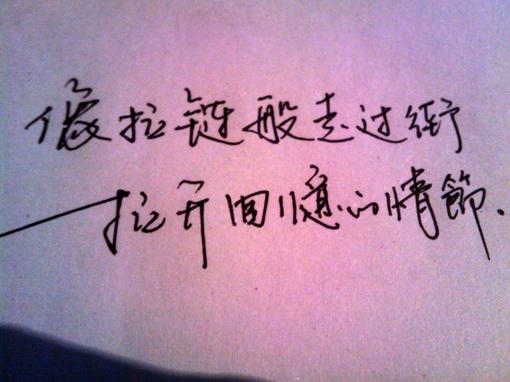 像拉链般走过街
——拉开回憶的情節.